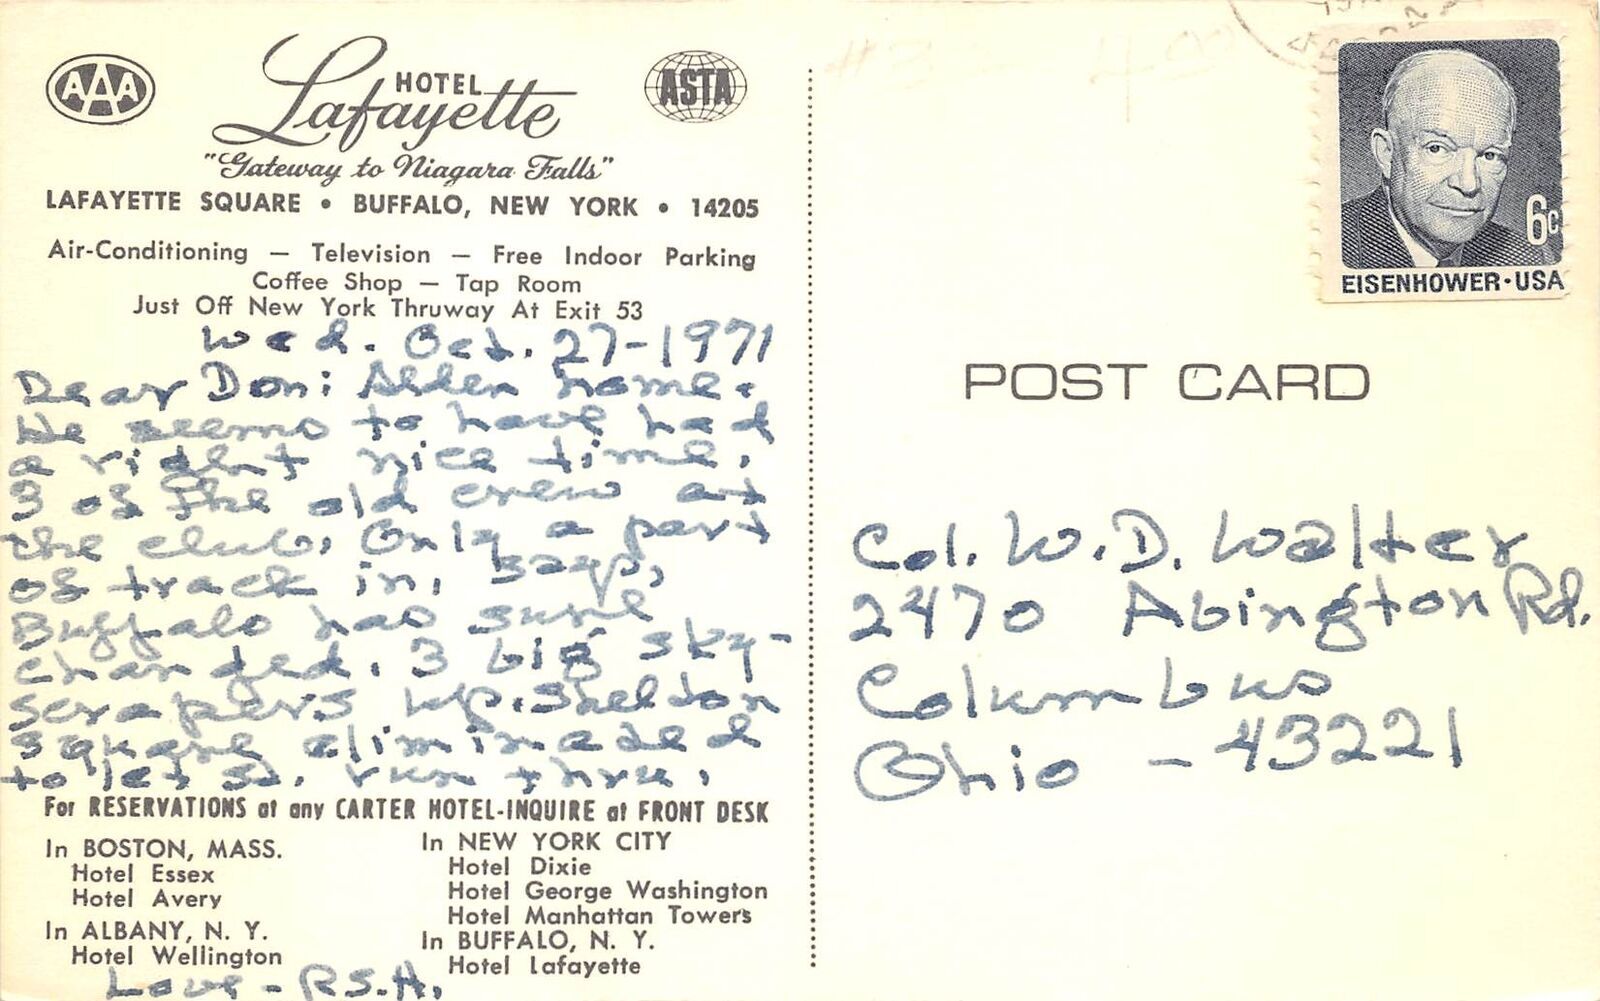 AAA
HOTEL
Lafayette
ASTA
"Gateway to Niagara Falls"
LAFAYETTE SQUARE • BUFFALO, NEW YORK • 14205
Air-Conditioning — Television — Free Indoor Parking
Coffee Shop — Tap Room
Just Off New York Thruway At Exit 53
Wed. Oct. 27-1971
Dear Don: Alden home.
We seems to have had
a right nice time.
3 of the old crew at
the club. Only a part
of track in,
Buffalo has sure
changed. 3 big sky-
scrapers up. Sheldon
Square eliminated
to let St. run thru.
For RESERVATIONS at any CARTER HOTEL-INQUIRE at FRONT DESK
In BOSTON, MASS.
Hotel Essex
Hotel Avery
In ALBANY, N. Y.
Hotel Wellington
In NEW YORK CITY
Hotel Dixie
Hotel George Washington
Hotel Manhattan Towers
In BUFFALO, N. Y.
Hotel Lafayette
Love - R.S.H.
6c
EISENHOWER·USA
POST CARD
Col. W.D. Walter
2470 Abington Rd.
Columbus
Ohio - 43221